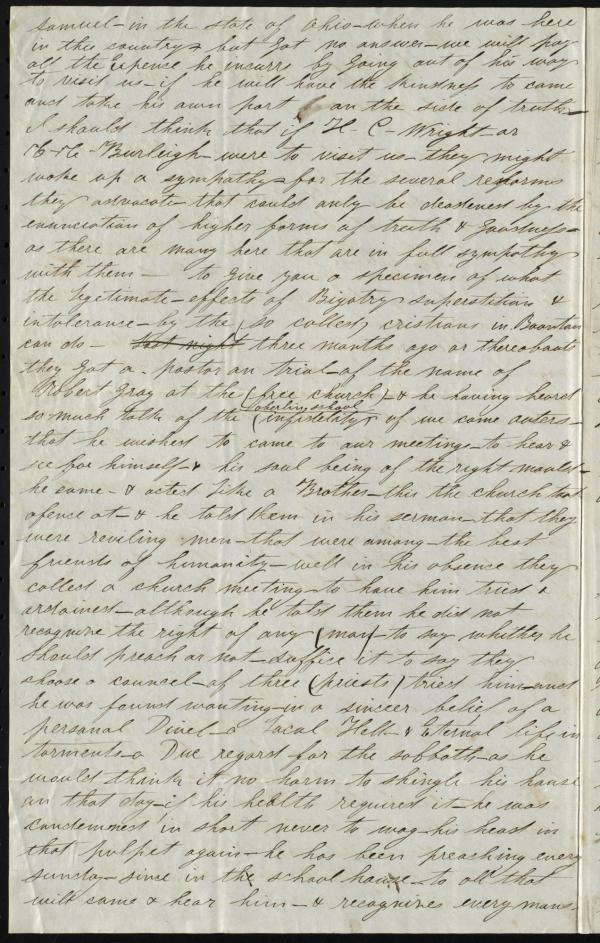 samuel - in the state of Ohio - when he was here
in this country - but Got no answer - we will pay
all the Expence he incurrs by Going out of his way
to visit us - if he will have the kindness to come
and take his own part on the side of truth -
I should think that if H - C - Wright - or
C - C - Burleigh - were to visit us - they might
wake up a sympathy - for the several reforms
they advocate - that could only be deadened by the
enunciation of higher forms of truth & Goodness -
as there are many here that are in full sympathy
with them - to Give you a specimen of what
the legitimate - effects of Bigotry superstition &
intolerance - by the (so called) cristians in Boonton
can do - last night three months ago or thereabouts
they Got a - pastor on trial - of the name of
Robert Gray at the (free church) - & he having heard
oberlin school
so much talk of the (infidelity) of we come outers -
that he wished to come to our meetings - to hear &
see for himself - & his soul being of the right mould -
he came - & acted like a Brother - this the church took
ofence at - & he told them in his sermon - that they
were reviling men - that were among - the best
friends of humanity - well in his absence they
called a church meeting - to have him tried &
arraigned - although he told them he did not
recognize the right of any (man) - to say whether he
should preach or not - suffice it to say they
choose a councel - of three (priests) tried him - and
he was found wanting - in a sinceer belief of a
personal Divel - a Local Hell - & Eternal life in
torments - a Due regard for the sabbath - as he
would think it no harm to shingle his house
on that day - if his health required it - he was
condemned in short never to wag his head in
that pulpet again - he has been preaching every
sunday - since in the school house - to all that
will come & hear him - & recognizes every mans -